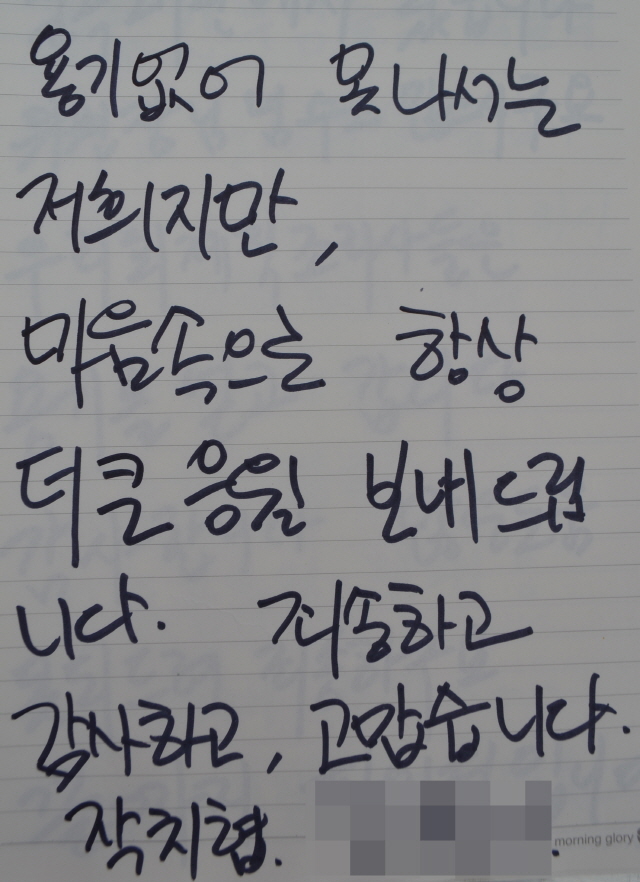 용기없어 못나서는
저희지만,
마음속으론 항상
더 큰 응원 보내드립
니다. 죄송하고
감사하고, 고맙습니다.
작치협.
morning glory